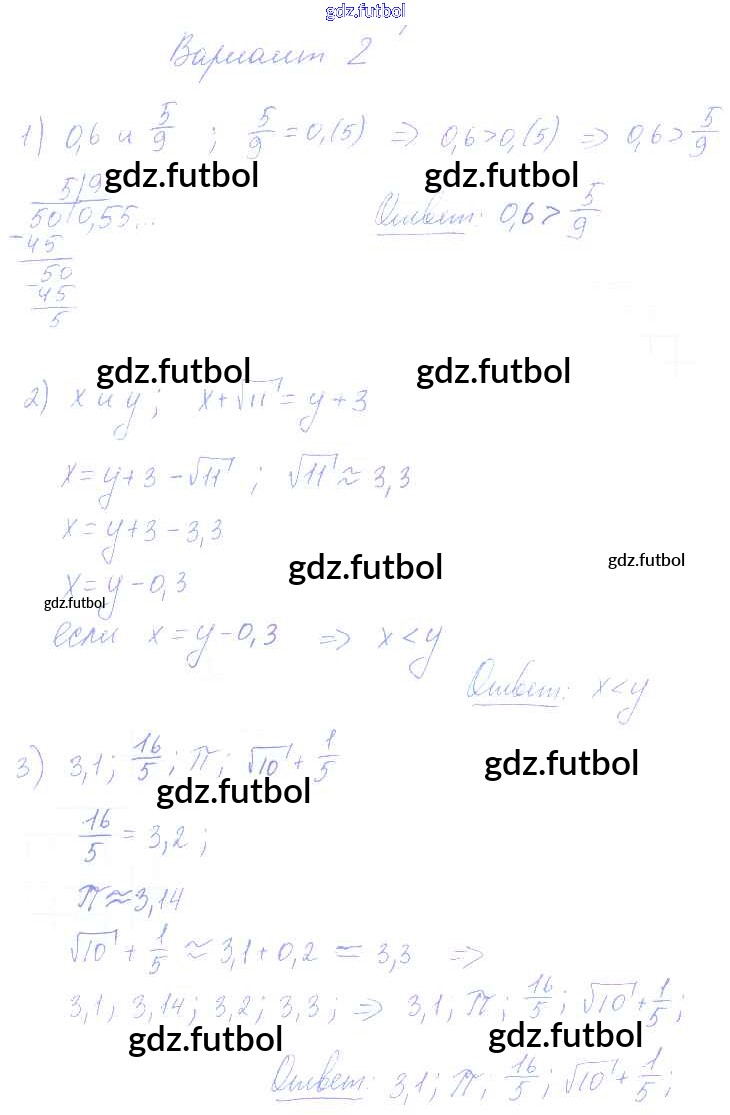 gdz.futbol
Вариант 2
1) 0,6 и 5/9 ; 5/9 = 0,(5) => 0,6 > 0,(5) => 0,6 > 5/9
gdz.futbol gdz.futbol
5 | 9
50 | 0,55...
Ответ: 0,6 > 5/9
- 45
50
- 45
5
gdz.futbol gdz.futbol
2) x и y ; x + √11 = y + 3
x = y + 3 - √11 ; √11 ≈ 3,3
x = y + 3 - 3,3
gdz.futbol gdz.futbol
x = y - 0,3
gdz.futbol
если x = y - 0,3 => x < y
Ответ: x < y
3) 3,1 ; 16/5 ; π ; √10 + 1/5
gdz.futbol
gdz.futbol
16/5 = 3,2 ;
π ≈ 3,14
√10 + 1/5 ≈ 3,1 + 0,2 = 3,3 =>
3,1 ; 3,14 ; 3,2 ; 3,3 ; => 3,1 ; π ; 16/5 ; √10 + 1/5 ;
gdz.futbol gdz.futbol
Ответ: 3,1 ; π ; 16/5 ; √10 + 1/5 ;